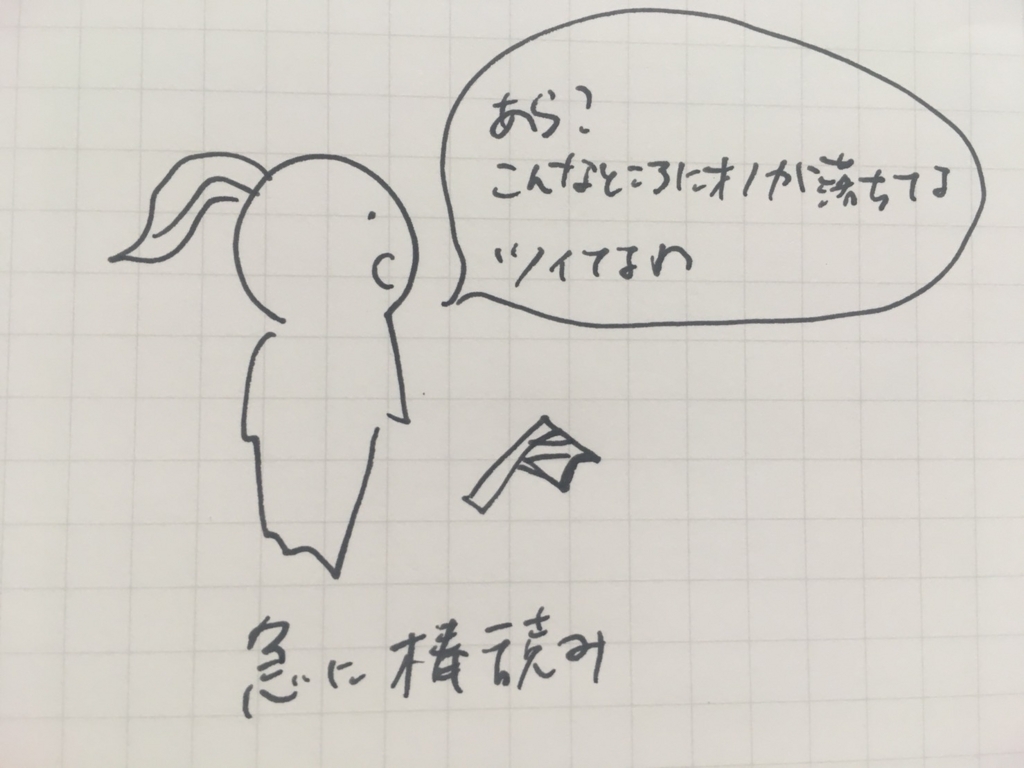 あら?
こんなところにオノが落ちてる
ツイてるわ
急に棒読み